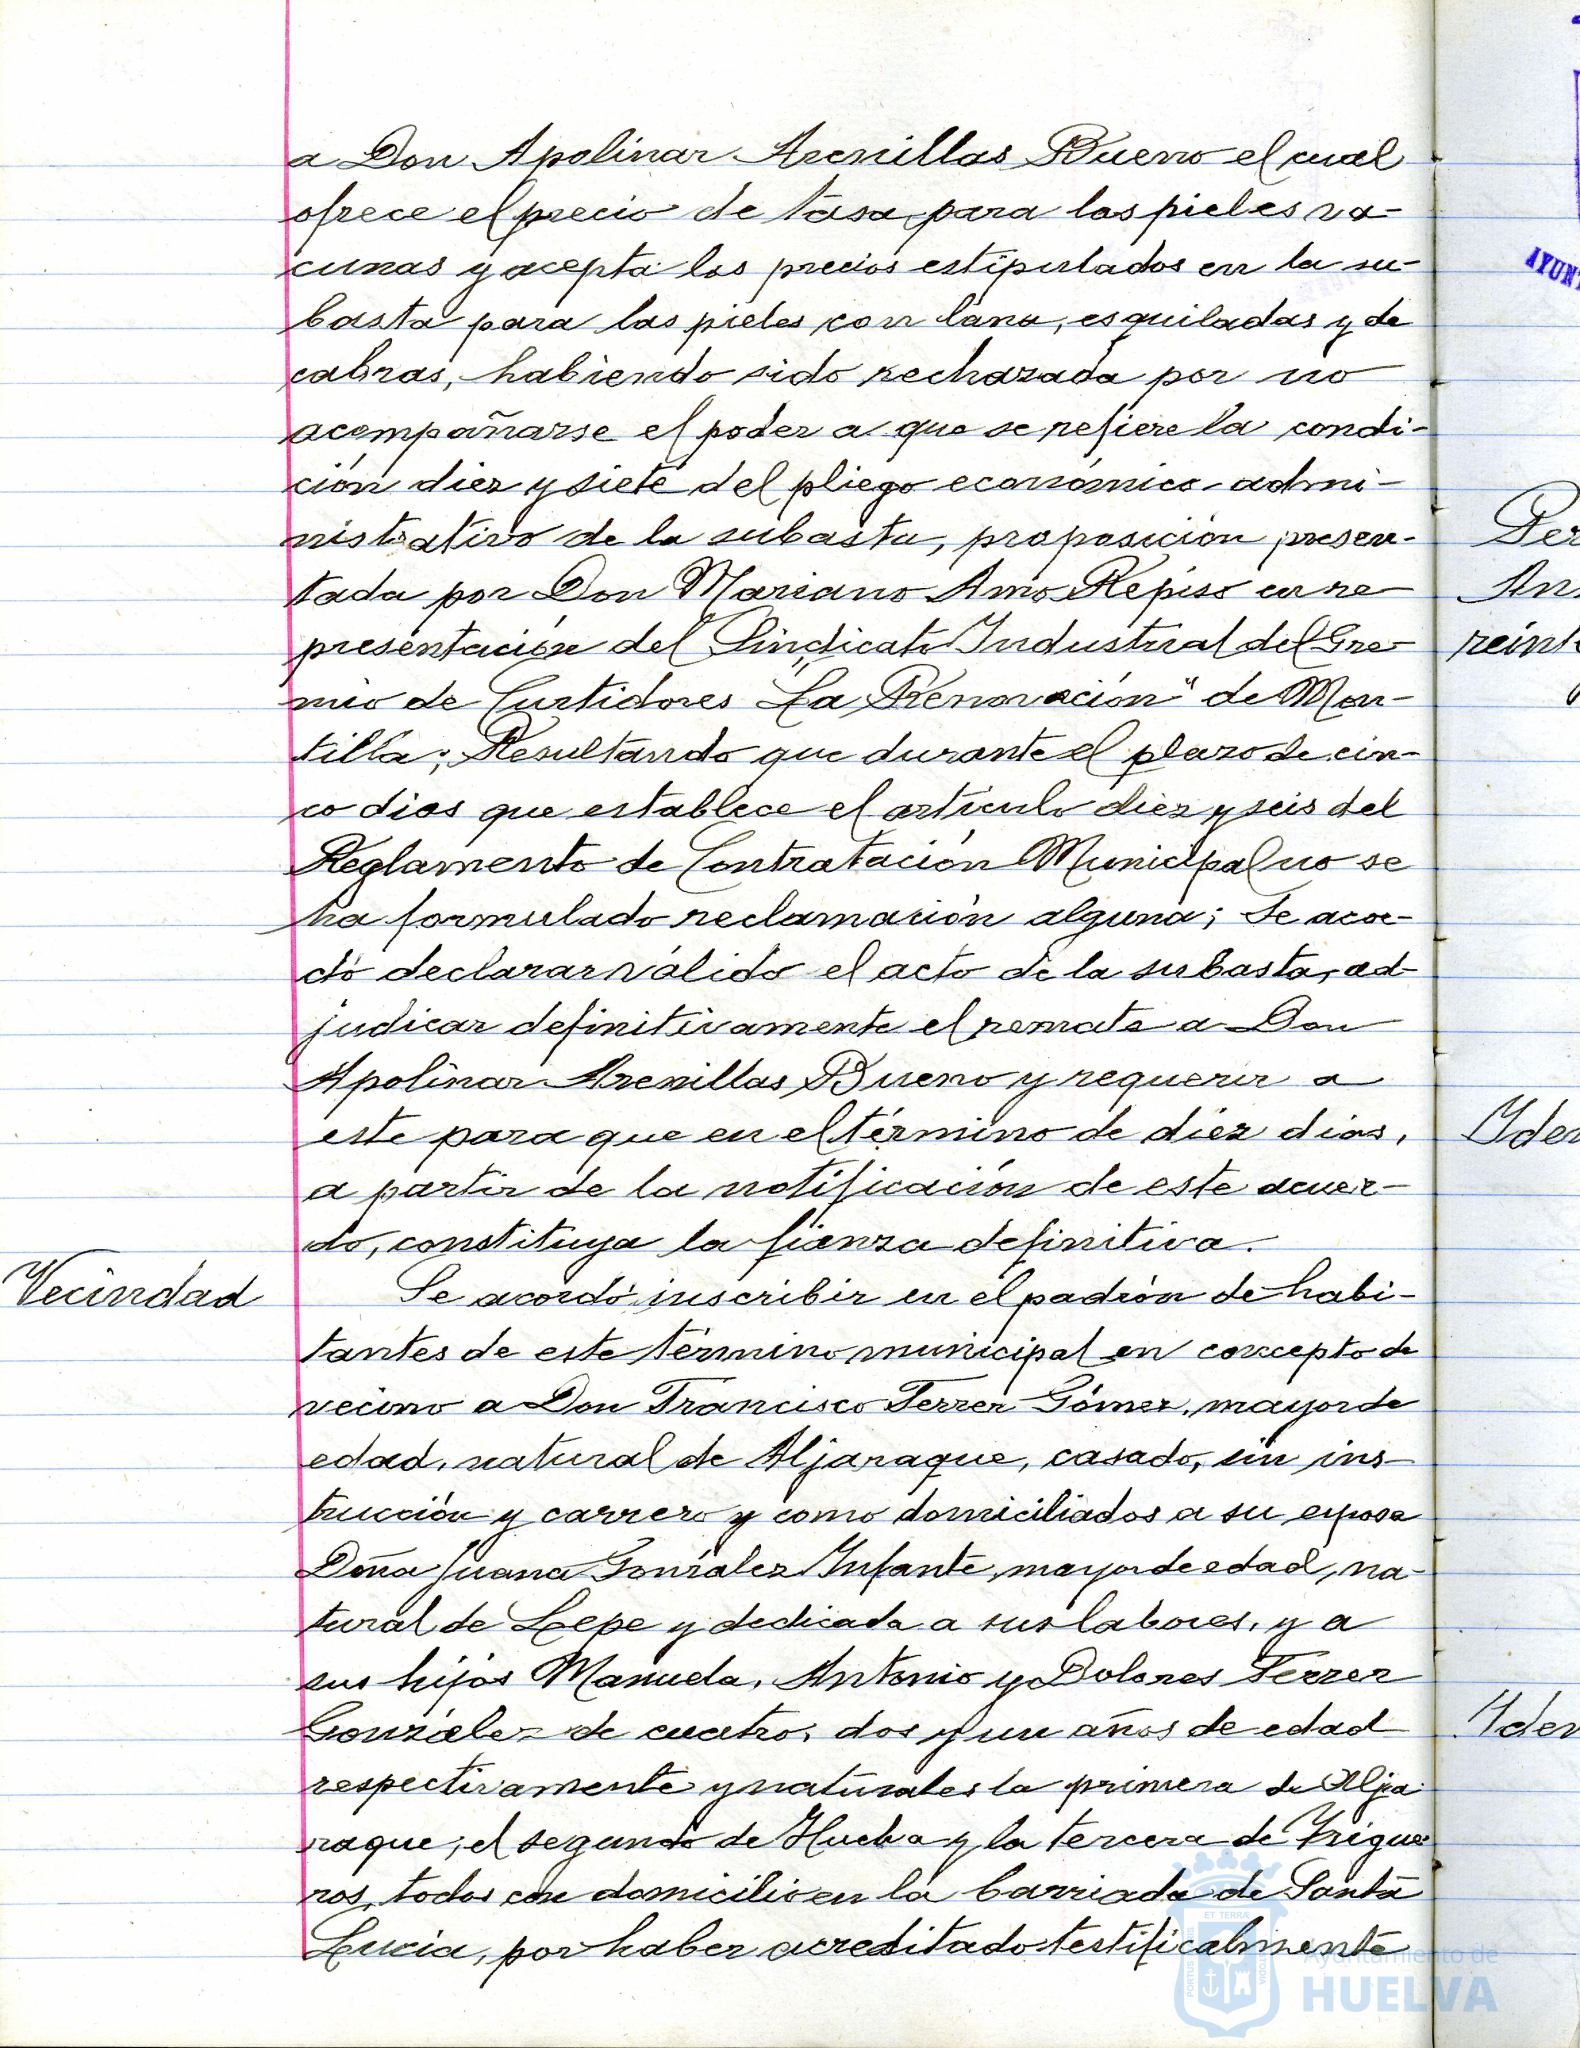 a Don Apolinar Arenillas Bueno el cual
ofrece el precio de tasa para las pieles va-
cunas y acepta los precios estipulados en la su-
basta para las pieles con lana, esquiladas y de
cabras, habiendo sido rechazada por no
acompañarse el poder a que se refiere la condi-
ción diez y siete del pliego económico-admi-
nistrativo de la subasta, proposición presen-
tada por Don Mariano Amo Repiso en re-
presentación del Sindicato Industrial del Gre-
mio de Curtidores "La Renovación" de Mon-
tilla; Resultando que durante el plazo de cin-
co dias que establece el artículo diez y seis del
Reglamento de Contratación Municipal no se
ha formulado reclamación alguna; Se acor-
dó declarar válido el acto de la subasta, ad-
judicar definitivamente el remate a Don
Apolinar Arenillas Bueno y requerir a
este para que en el término de diez dias,
a partir de la notificación de este acuer-
do, constituya la fianza definitiva.
Vecindad
Se acordó inscribir en el padrón de habi-
tantes de este término municipal en concepto de
vecino a Don Francisco Ferrer Gómez, mayor de
edad, natural de Aljaraque, casado, sin ins-
trucción y carrero y como domiciliados a su esposa
Doña Juana González Infante, mayor de edad, na-
tural de Lepe y dedicada a sus labores, y a
sus hijos Manuela, Antonio y Dolores Ferrer
González de cuatro, dos y un años de edad
respectivamente y naturales la primera de Alja
raque, el segundo de Huelva y la tercera de Trigue
ros, todos con domicilio en la barriada de Santa
Lucia, por haber acreditado testificalmente
Ayuntamiento de
HUELVA